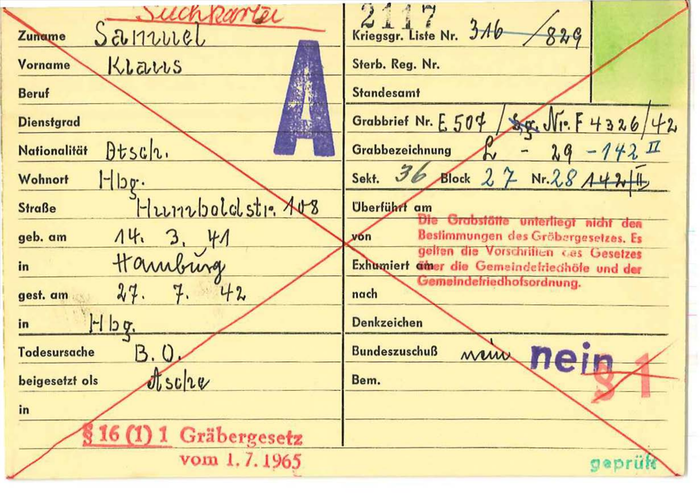 Suchkartei
Zuname Samuel
Vorname Klaus
Beruf
Dienstgrad
Nationalität Dtsch.
Wohnort Hbg.
Straße Humboldstr. 108
geb. am 14. 3. 41
in Hamburg
gest. am 27. 7. 42
in Hbg.
Todesursache B. O.
beigesetzt als Asche
in
§ 16 (1) 1 Gräbergesetz
vom 1. 7. 1965
A
2117
Kriegsgr. Liste Nr. 316 / 829
Sterb. Reg. Nr.
Standesamt
Grabbrief Nr. E 507 / Nr. F 4326/42
Grabbezeichnung L - 29 - 142 II
Sekt. 36 Block 27 Nr. 28 142/II
Überführt am
Die Grabstätte unterliegt nicht den
von Bestimmungen des Gräbergesetzes. Es
gelten die Vorschriften des Gesetzes
Exhumiert am über die Gemeindefriedhöfe und der
Gemeindefriedhofsordnung.
nach
Denkzeichen
Bundeszuschuß nein nein
§ 1
Bem.
geprüft